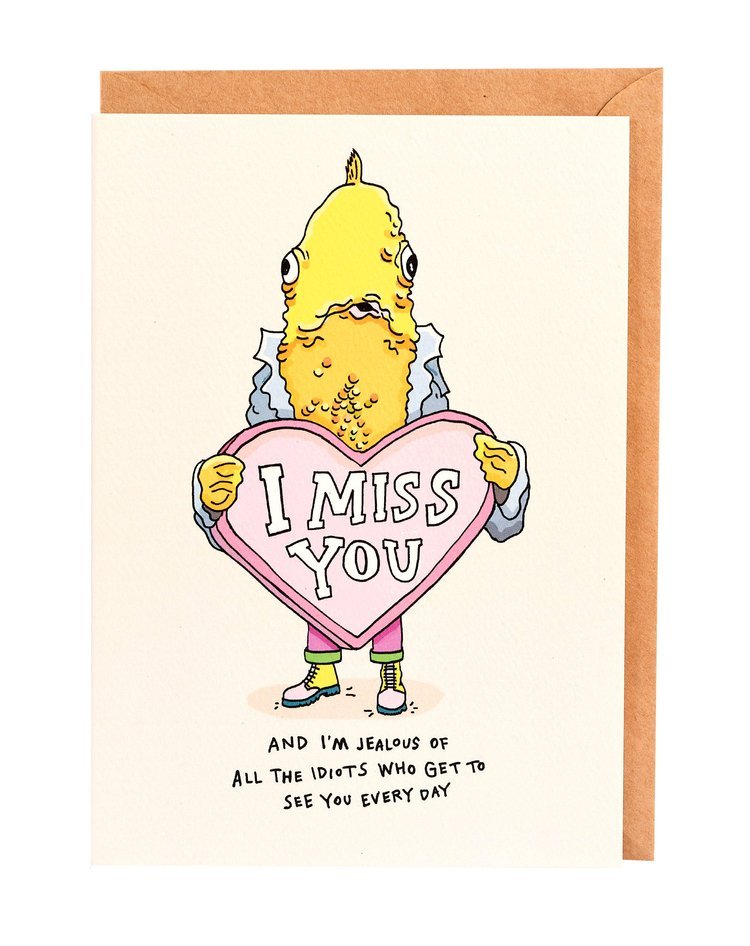 I MISS
YOU
AND I'M JEALOUS OF
ALL THE IDIOTS WHO GET TO
SEE YOU EVERY DAY